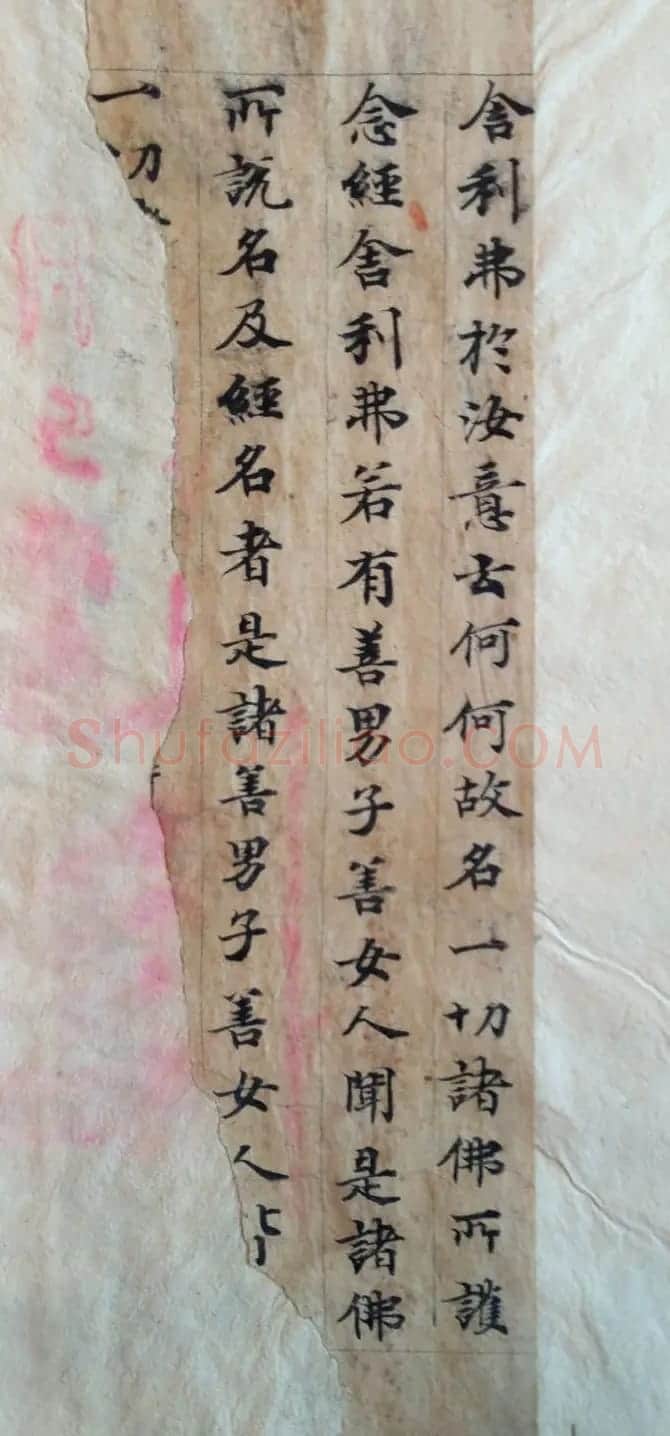 舍利弗於汝意云何何故名一切諸佛所護
念經舍利弗若有善男子善女人聞是諸佛
所説名及經名者是諸善男子善女人
一切
Shufaziliao.COM